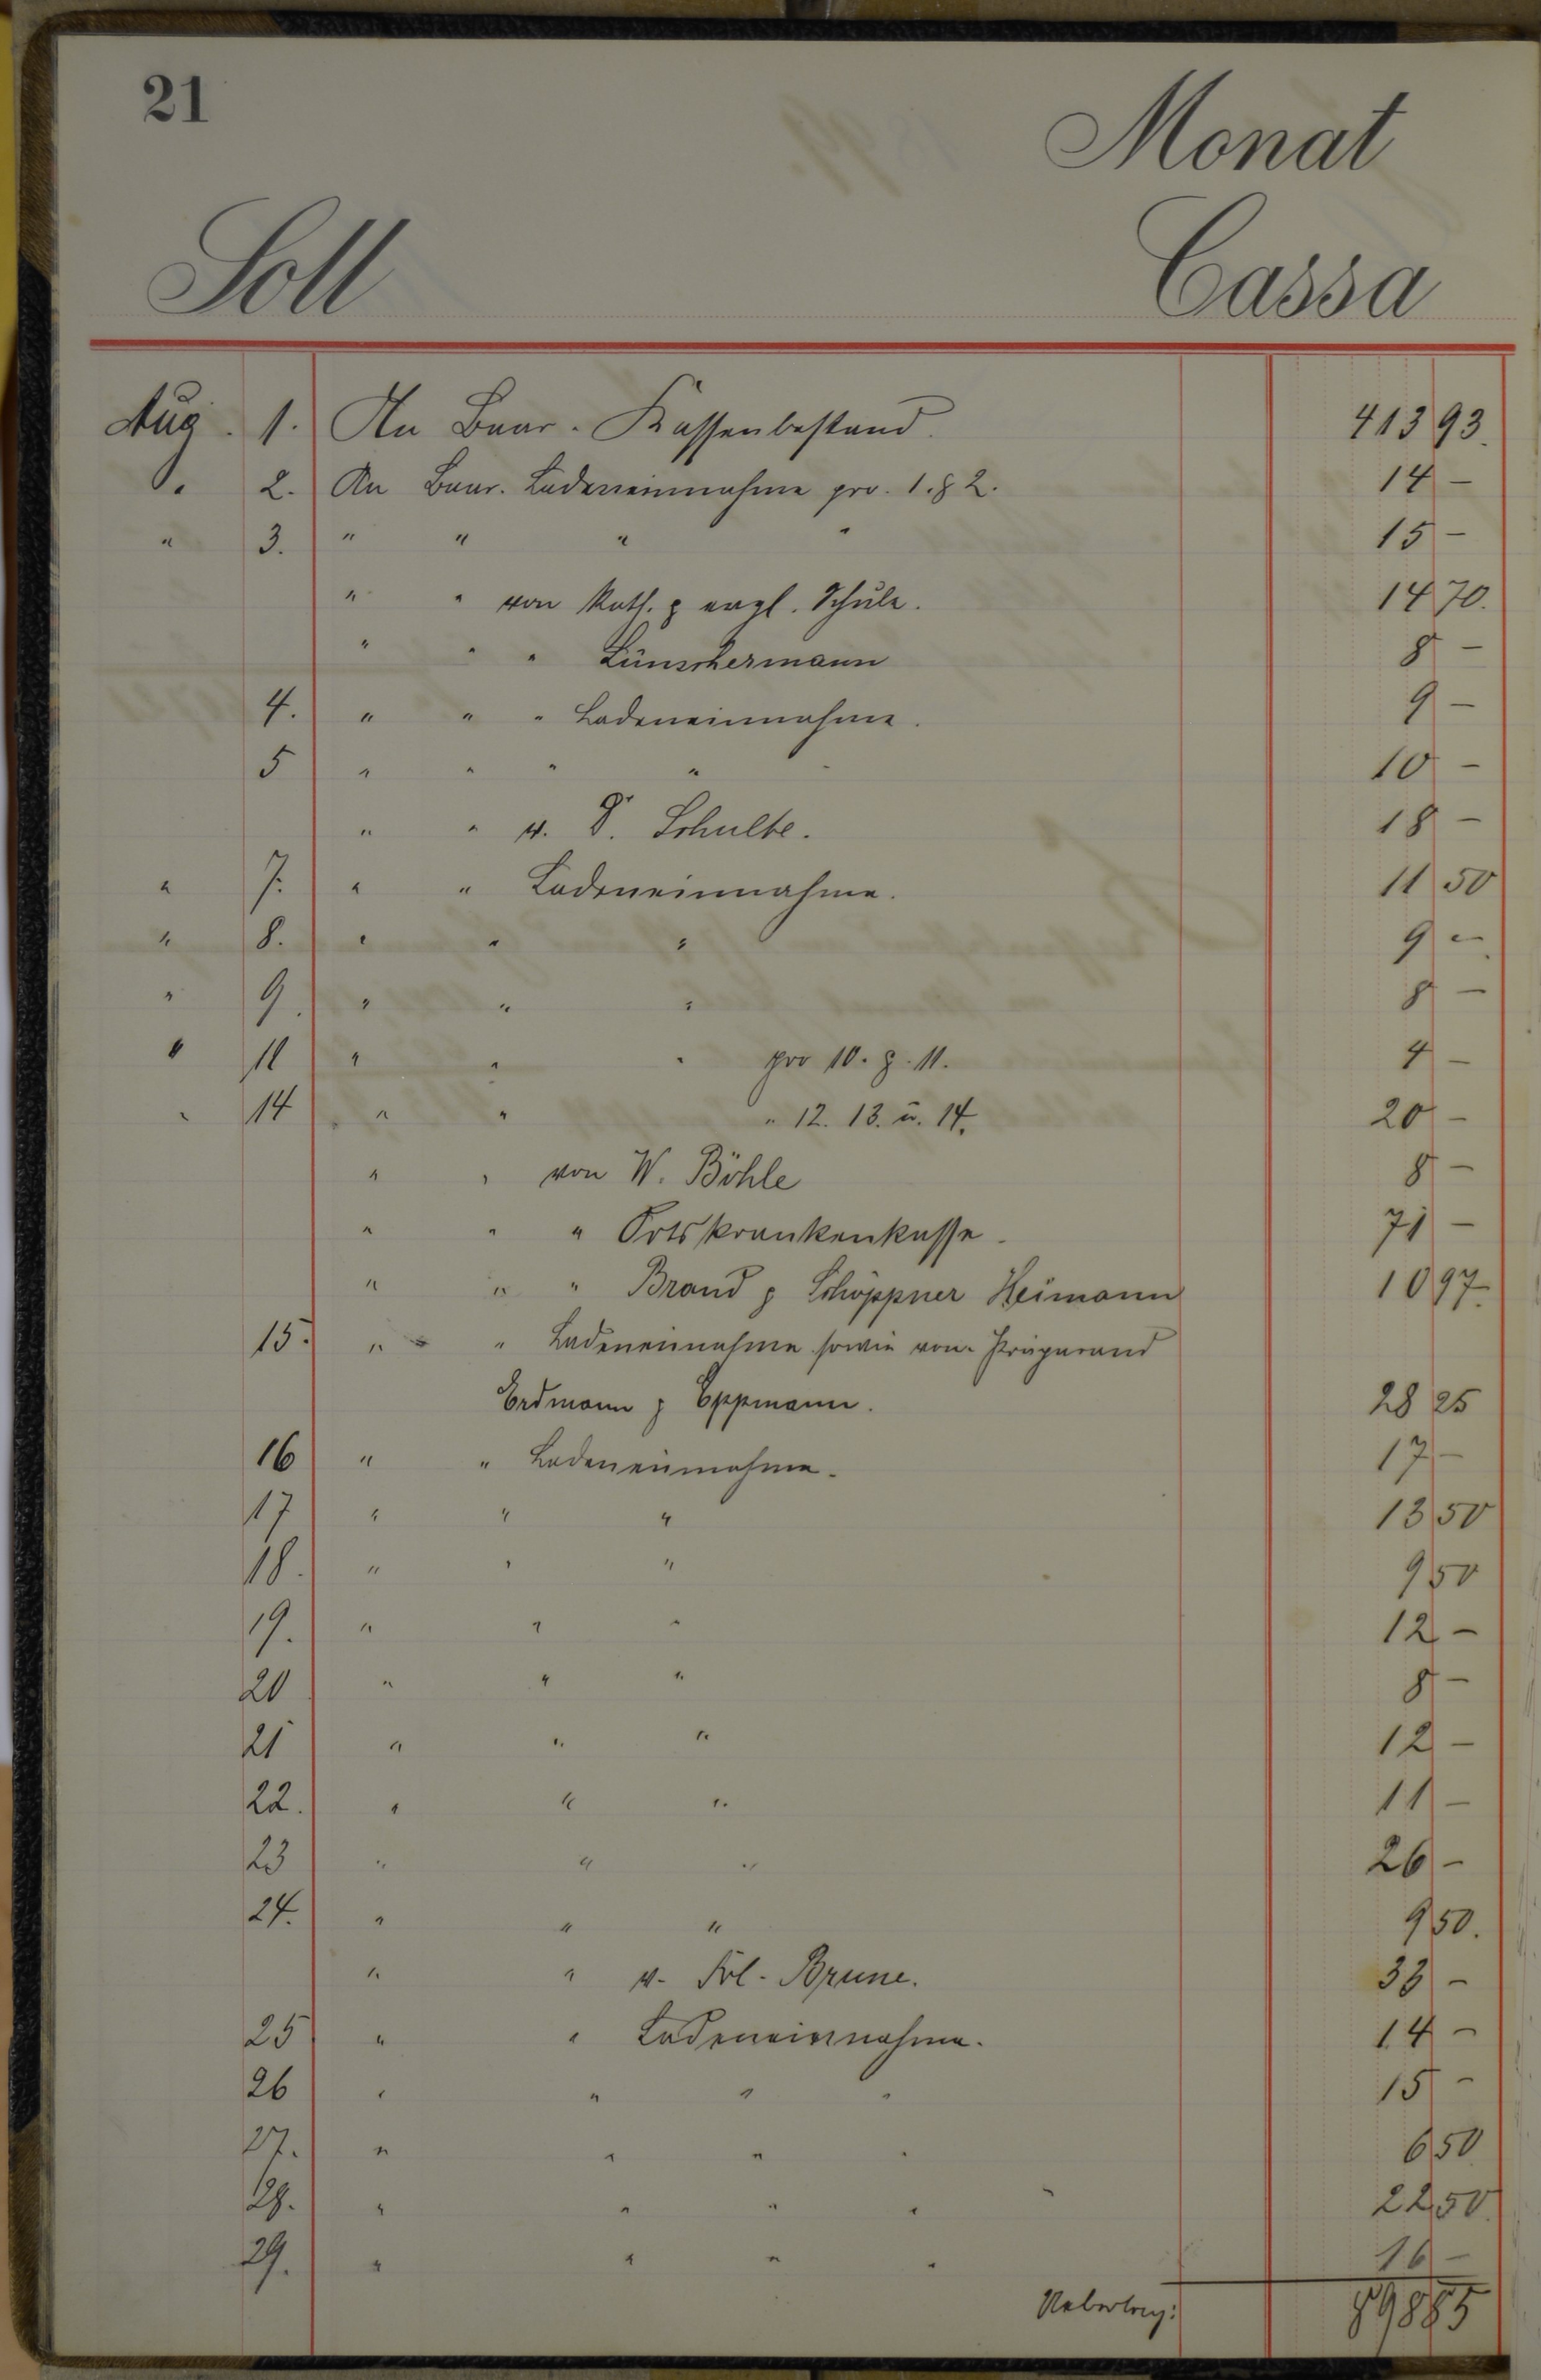 21
Monat
Soll
Cassa
Aug. 1. An Baar-Kassenbestand. 413 93.
" 2. An Baar-Ladeneinnahme pro. 1. & 2. 14 –
" 3. " " " " 15 –
" " von kath. & evgl. Schule. 14 70.
" " " Lünschermann 8 –
4. " " " Ladeneinnahme. 9 –
5 " " " " 10 –
" " v. D. Schulte. 18 –
" 7. " " Ladeneinnahme. 11 50
" 8. " " " 9 –
" 9. " " " 8 –
" 11 " " " pro 10. & 11. 4 –
" 14 " " " 12. 13. u. 14. 20 –
" " von W. Böhle 8 –
" " " Ortskrankenkasse. 71 –
" " " Brand & Schöppner Heimann 10 97.
15. " " Ladeneinnahme sowie von Präparand
Erdmann & Eppmann. 28 25
16 " " Ladeneinnahme. 17 –
17 " " " 13 50
18. " " " 9 50
19. " " " 12 –
20 " " " 8 –
21 " " " 12 –
22. " " " 11 –
23 " " " 26 –
24. " " " 9 50.
" " v. Frl. Brune. 33 –
25 " " Ladeneinnahme. 14 –
26 " " " " 15 –
27. " " " " 6 50
28. " " " " 22 50
29. " " " " 16 –
Uebertrag: 898 85